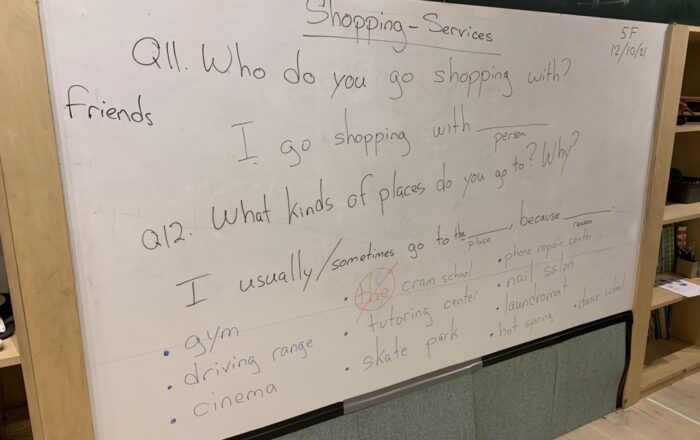 Shopping - Services
5F
12/10/21
Q11. Who do you go shopping with?
friends
I go shopping with ______
person
Q12. What kinds of places do you go to? Why?
I usually/sometimes go to the ______, because ______.
place
reason
• gym
• driving range
• cinema
• the cram school
• tutoring center
• skate park
• phone repair center
• nail salon
• laundromat
• hot spring
• dance school